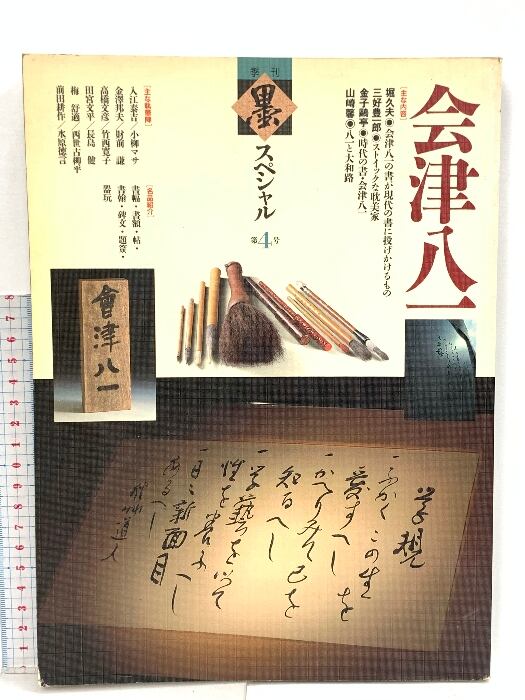 会津八一
[主な内容]
堀久夫●会津八一の書が現代の書に投げかけるもの
三好豊一郎●ストイックな耽美家
金子鷗亭●時代の書・会津八一
山崎馨●八一と大和路
季刊
墨
スペシャル
第4号
[主な執筆陣]
入江泰吉/小柳マサ
金澤邦夫/財前 謙
高橋文彦/竹西寛子
田宮文平/長島 健
梅 舒適/西世古柳平
前田耕作/水原徳言
[名品紹介]
書幅・書額・帖・
書簡・碑文・題簽・
器玩
會津八一
学規
一ふかくこの生を
愛すへし
一かへりみて己を
知るへし
一学藝を以て
性を養ふへし
一日々新面目
あるへし
秋艸道人